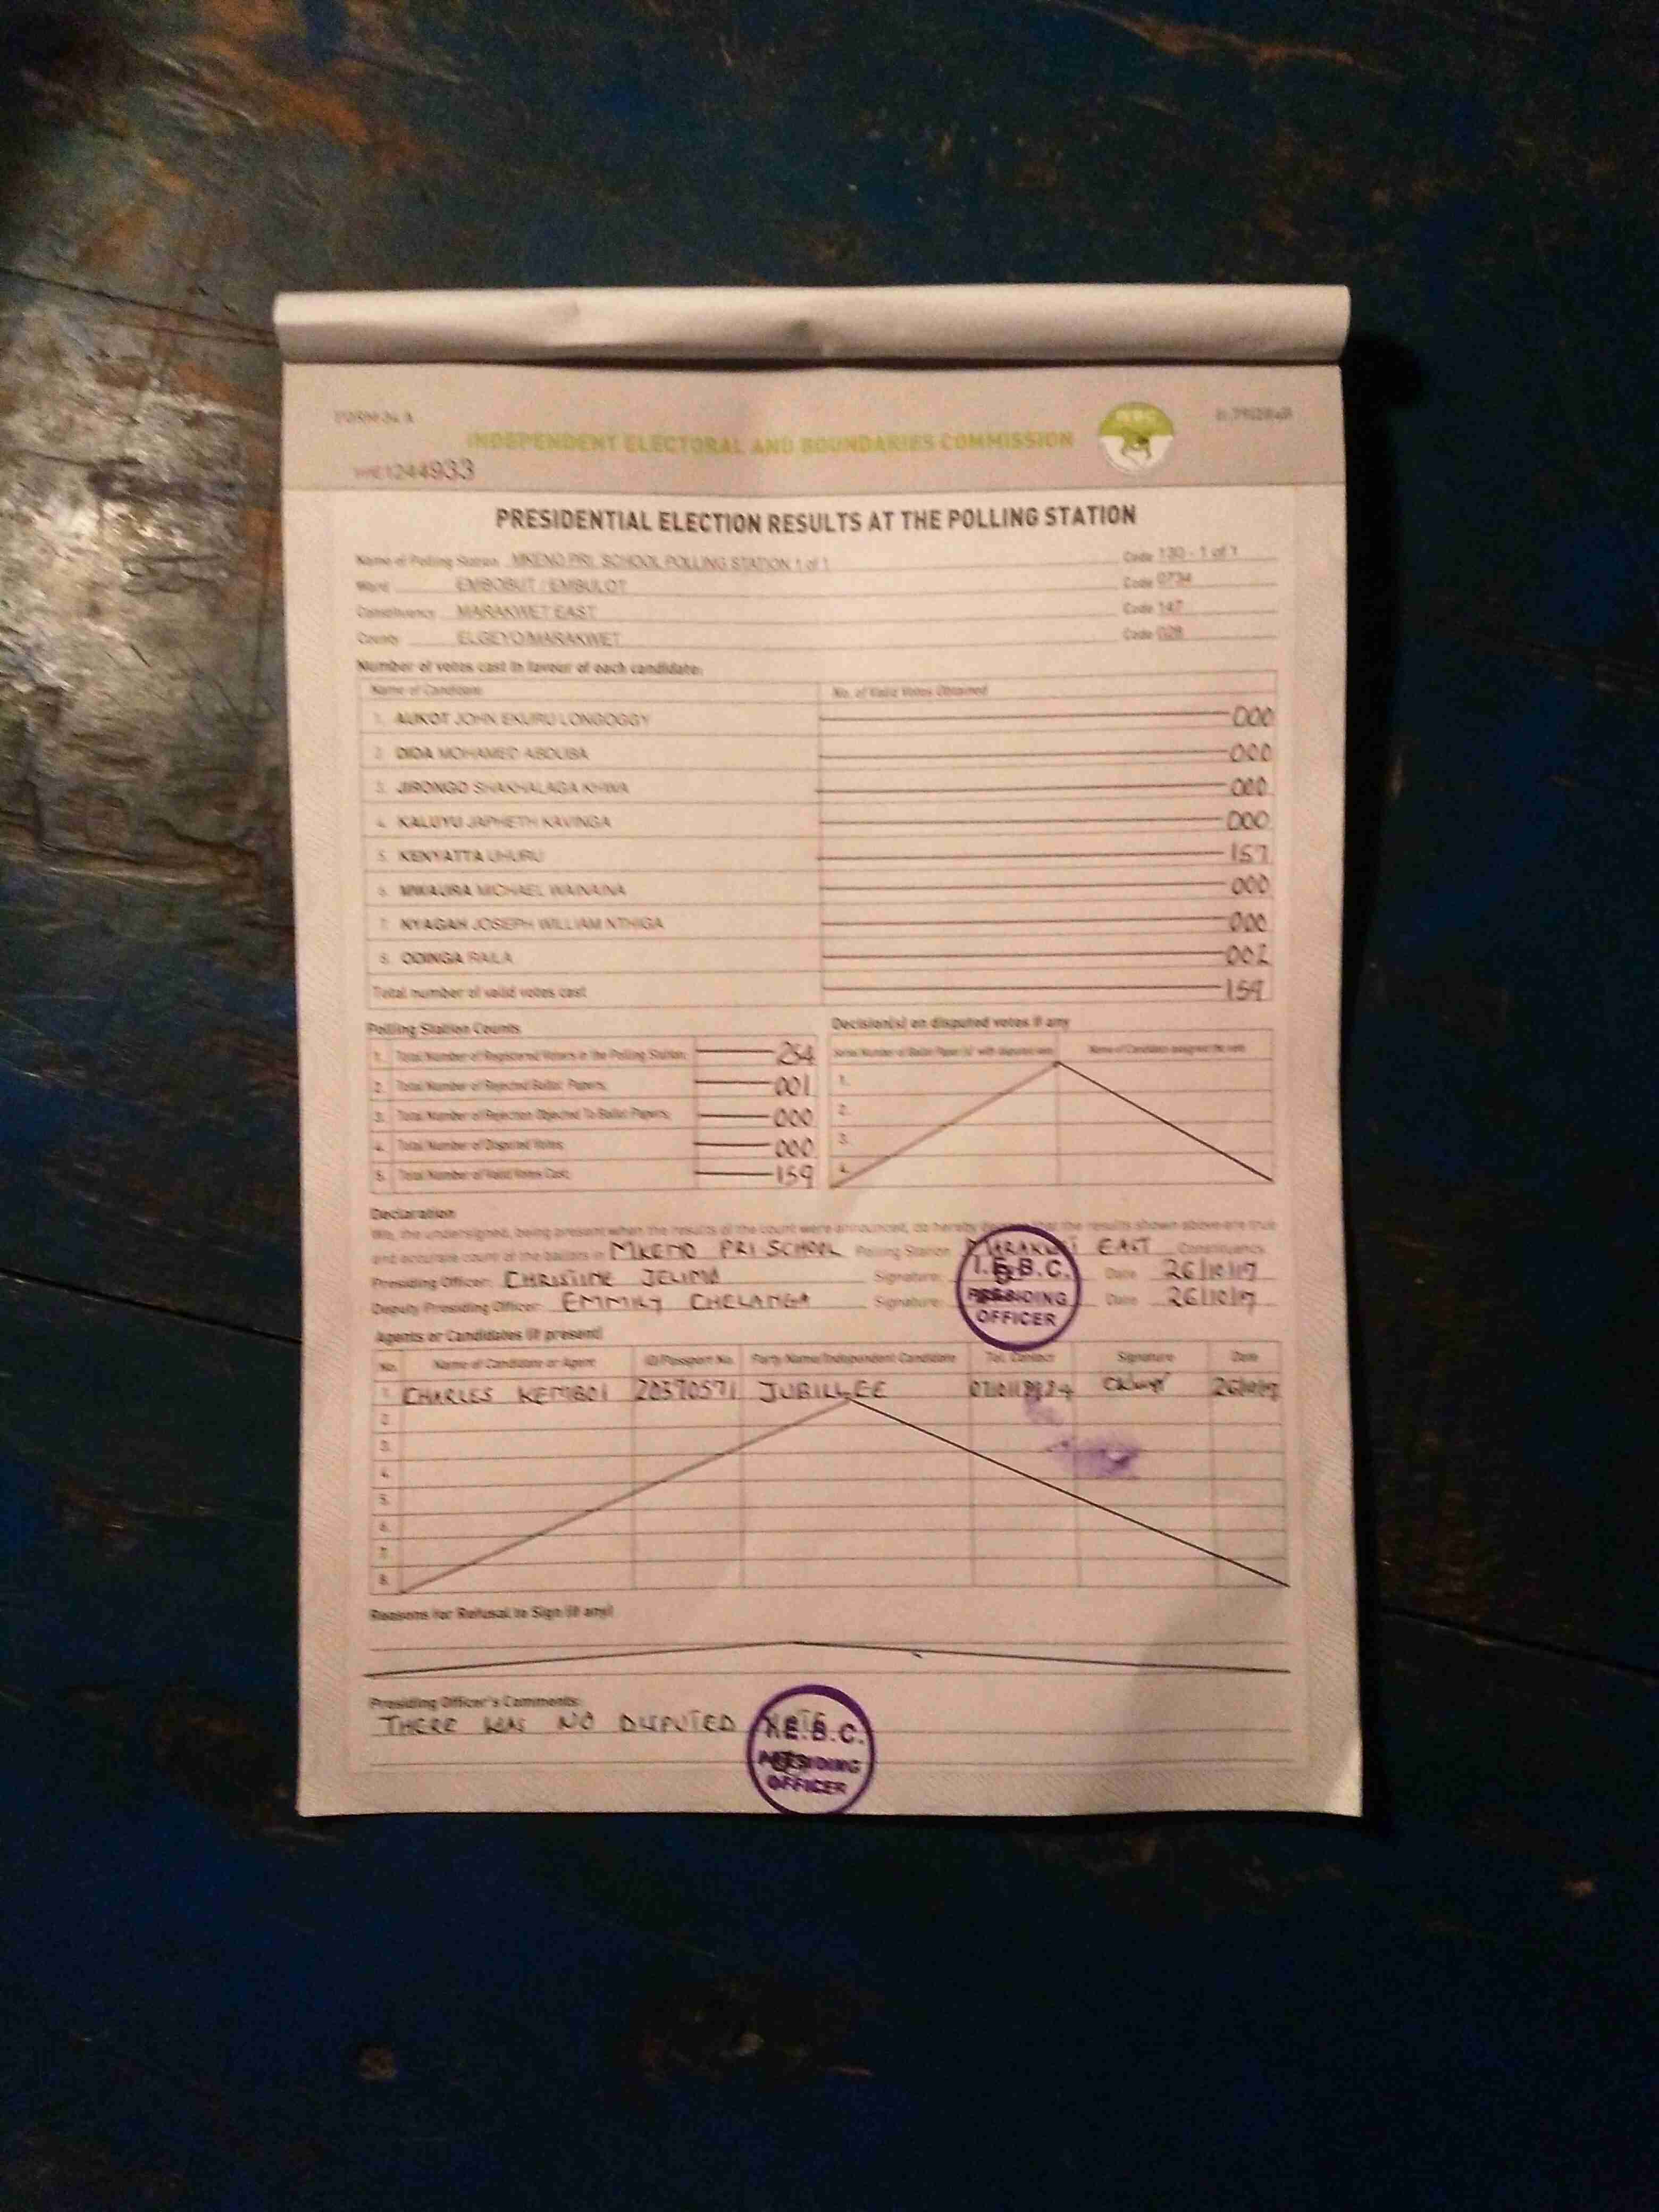 FORM 34 A
INDEPENDENT ELECTORAL AND BOUNDARIES COMMISSION
1244933
PRESIDENTIAL ELECTION RESULTS AT THE POLLING STATION
Name of Polling Station MKENO PRI. SCHOOL POLLING STATION 1 of 1 Code 130 - 1 of 1
Ward EMBOBUT / EMBULOT Code 0734
Constituency MARAKWET EAST Code 147
County ELGEYO/MARAKWET Code 028
Number of votes cast in favour of each candidate:
Name of Candidate No. of Valid Votes Obtained
1. AUKOT JOHN EKURU LONGOGGY 000
2. DIDA MOHAMED ABDUBA 000
3. JIRONGO SHAKHALAGA KHWA 000
4. KALUYU JAPHETH KAVINGA 000
5. KENYATTA UHURU 157
6. MWAURA MICHAEL WAINAINA 000
7. NYAGAH JOSEPH WILLIAM NTHIGA 000
8. ODINGA RAILA 002
Total number of valid votes cast 159
Polling Station Counts
1. Total Number of Registered Voters in the Polling Station 254
2. Total Number of Rejected Ballot Papers 001
3. Total Number of Rejection Objected To Ballot Papers 000
4. Total Number of Disputed Votes 000
5. Total Number of Valid Votes Cast 159
Decision(s) on disputed votes if any
Serial Number of Ballot Paper (s) with disputed vote Name of Candidate assigned the vote
1.
2.
3.
4.
Declaration
We, the undersigned, being present when the results of the count were announced, do hereby that the results shown above are true
and accurate count of the ballots in MKENO PRI SCHOOL Polling Station EAST Constituency
Presiding Officer: CHRISTINE JELIMO Signature: Date 26/10/17
Deputy Presiding Officer: EMMILY CHELANGA Signature: Date 26/10/17
I.E.B.C.
PRESIDING
OFFICER
Agents or Candidates (if present)
No. Name of Candidate or Agent ID/Passport No. Party Name/Independent Candidate Tel. Contact Signature Date
1. CHARLES KEMBOI 20370571 JUBILLEE 26/10/17
2.
3.
4.
5.
6.
7.
8.
Reasons for Refusal to Sign (if any)
Presiding Officer's Comments:
THERE WAS NO DISPUTED
I.E.B.C.
PRESIDING
OFFICER